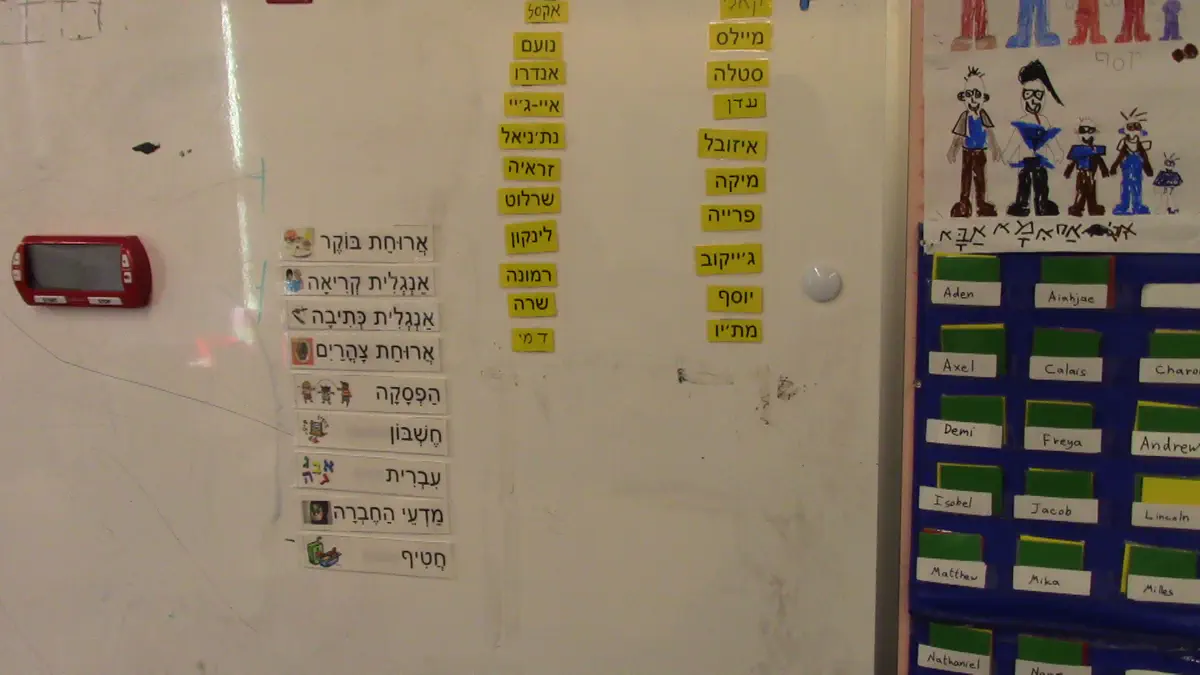 אֲרוּחַת בּוֹקֶר
אַנְגְלִית קְרִיאָה
אַנְגְלִית כְּתִיבָה
אֲרוּחַת צָהֳרַיִם
הַפְסָקָה
חֶשְׁבּוֹן
עִבְרִית
מַדְעֵי הַחֶבְרָה
חֲטִיף
אקסל
נועם
אנדרו
איי-ג׳יי
נת׳ניאל
זראיה
שרלוט
לינקון
רמונה
שרה
דמי
מיילס
סטלה
עדן
איזובל
מיקה
פרייה
ג׳ייקוב
יוסף
מת׳יו
Aden
Ainhjae
Axel
Calais
Demi
Freya
Andrew
Isobel
Jacob
Lincoln
Matthew
Mika
Milles
Nathaniel